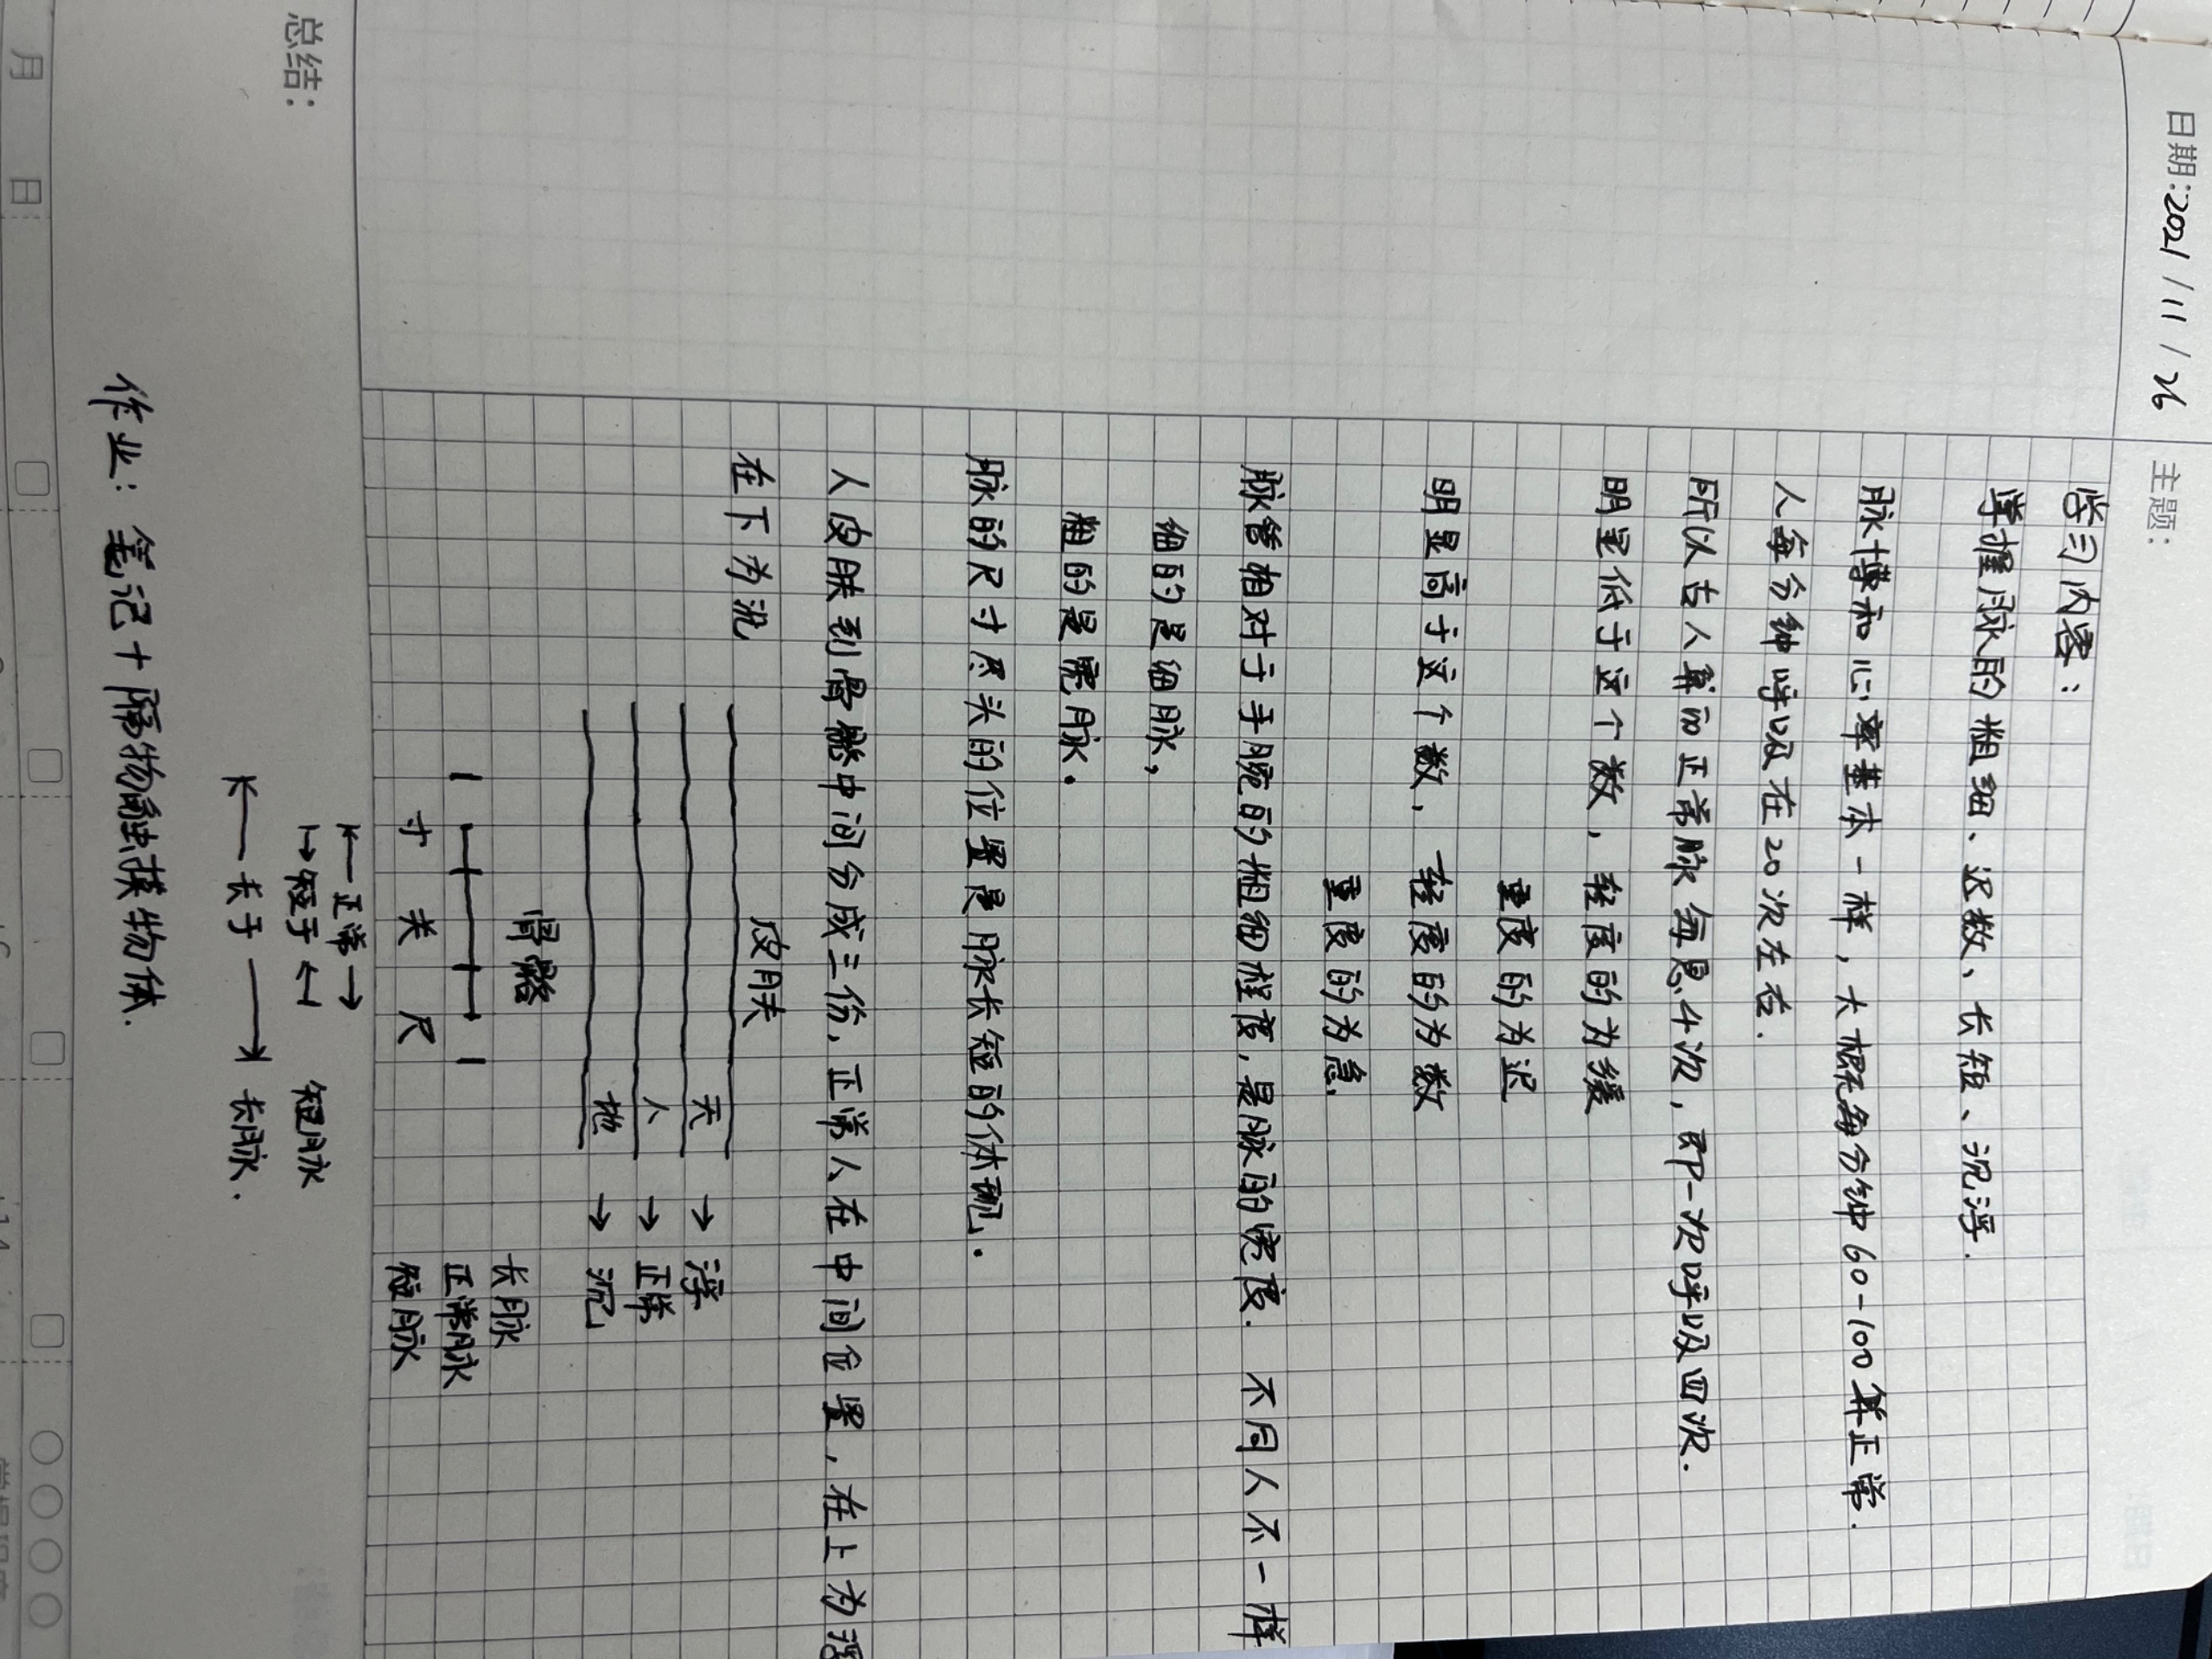 日期:2021/11/26
主题:
学习内容:
掌握脉的粗细、迟数、长短、沉浮.
脉博和心率基本一样,大概每分钟60-100算正常.
人每分钟呼吸在20次左右.
所以古人算而正常脉每息4次,即一次呼吸四次.
明显低于这个数,轻度的为缓
重度的为迟
明显高于这个数,轻度的为数
重度的为急.
脉管相对于手腕的粗细程度,是脉的宽度. 不同人不一样
细的是细脉,
粗的是宽脉.
脉的尺寸尽头的位置是脉长短的体现.
人皮肤到骨骼中间分成三份,正常人在中间位置,在上为浮
在下为沉
皮肤
天 → 浮
人 → 正常
地 → 沉
骨骼
长脉
正常脉
短脉
寸 关 尺
←正常→
→短于← 短脉
←长于→ 长脉.
总结:
作业:笔记+隔物触摸物体.
月 日